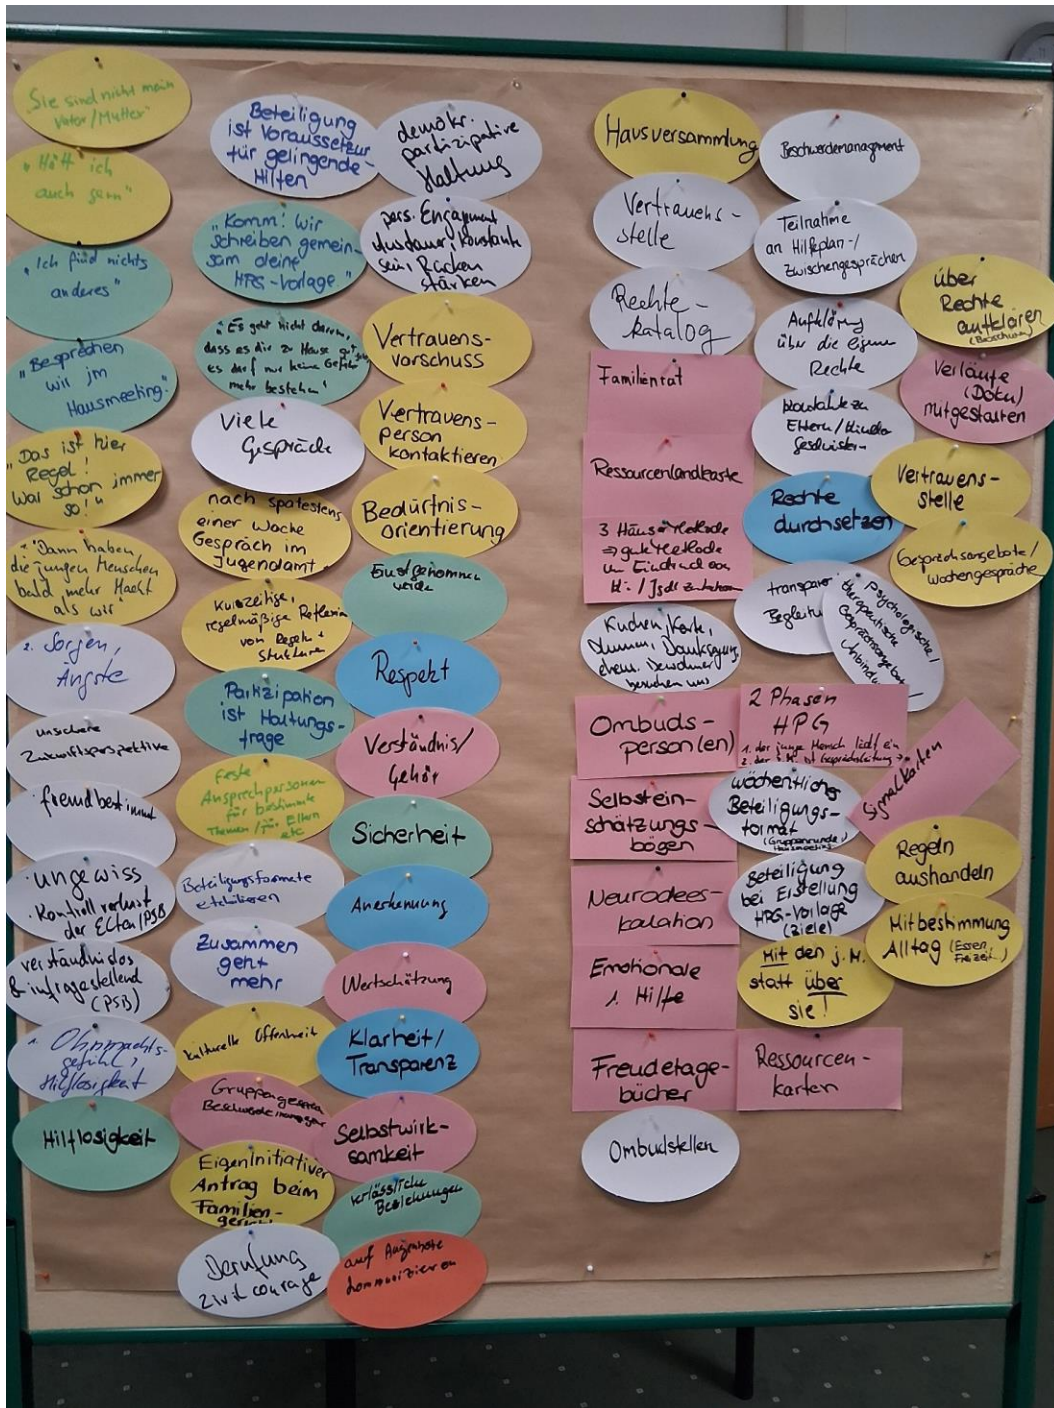 "Sie sind nicht mein
Vater/Mutter"
"Hätt ich
auch gern"
"Ich find nichts
anderes"
"Besprechen
wir im
Hausmeeting."
"Das ist hier
Regel!
War schon immer
so!"
"Dann haben
die jungen Menschen
bald mehr Macht
als wir"
2. Sorgen,
Ängste
unsichere
Zukunftsperspektive
fremdbestimmt
ungewiss
Kontrollverlust
der Eltern/PSB
verständnislos
& infragestellend
(PSB)
1. Ohnmachts-
gefühl,
Hilflosigkeit
Hilflosigkeit
Beteiligung
ist Voraussetzung
für gelingende
Hilfen
"Komm! Wir
schreiben gemein-
sam deine
HPG-Vorlage."
"Es geht nicht darum,
dass es dir zu Hause gut
es darf nur keine Gefahr
mehr bestehen!
Viele
Gespräche
nach spätestens
einer Woche
Gespräch im
Jugendamt
kurzzeitige,
regelmäßige Reflexion
von Regeln +
Strukturen
Partizipation
ist Haltungs-
frage
Feste
Ansprechpersonen
für bestimmte
Themen / für Eltern
etc
Beteiligungsformate
etablieren
Zusammen
geht
mehr
kulturelle Offenheit
Eigeninitiativer
Antrag beim
Familien-
gericht
Berufung
Zivilcourage
demokr.
partizipative
Haltung
pers. Engagement
Ausdauer, Konstante
sein, Rücken
stärken
Vertrauens-
vorschuss
Vertrauens-
person
kontaktieren
Bedürfnis-
orientierung
Ernstgenommen
werden
Respekt
Verständnis/
Gehör
Sicherheit
Anerkennung
Wertschätzung
Klarheit/
Transparenz
Selbstwirk-
samkeit
verlässliche
Beziehungen
auf Augenhöhe
kommunizieren
Hausversammlung
Vertrauens-
stelle
Rechte-
katalog
Familienrat
Ressourcenlandkarte
3 Häuser Methode
⇒ gute Methode
um Eindruck von
Kuchen, Karte,
Blumen, Danksagung,
ehem. Bewohner
besuchen uns
Ombuds-
person(en)
Selbstein-
schätzungs-
bögen
Neurodees-
kalation
Emotionale
1. Hilfe
Freudetage-
bücher
Ombudstellen
Beschwerdemanagement
Teilnahme
an Hilfeplan-/
Zwischengesprächen
Aufklärung
über die eigenen
Rechte
Kontakte zu
Eltern/Kinder
Geschwister
Rechte
durchsetzen
transparente
Begleitung
Psychologische/
therapeutische
Gesprächsangebote
2 Phasen
HPG
1. der junge Mensch lädt ein
wöchentliches
Beteiligungs-
format
(Gruppenrunde,
Hausmeeting)
Beteiligung
bei Eistellung
HPG-Vorlage
(Ziele)
Mit den j. M.
statt über
sie!
Ressourcen-
karten
über
Rechte
aufklären
Verläufe
(Doku)
mitgestalten
Vertrauens-
stelle
Gesprächsangebote/
Wochengespräche
Signalkarten
Regeln
aushandeln
Mitbestimmung
Alltag (Essen,
Freizeit..)